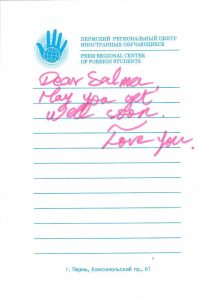 ПЕРМСКИЙ РЕГИОНАЛЬНЫЙ ЦЕНТР
ИНОСТРАННЫХ ОБУЧАЮЩИХСЯ
PERM REGIONAL CENTER
OF FOREIGN STUDENTS
Dear Salma,
May you get
well soon.
Love you.
г. Пермь, Комсомольский пр., 61